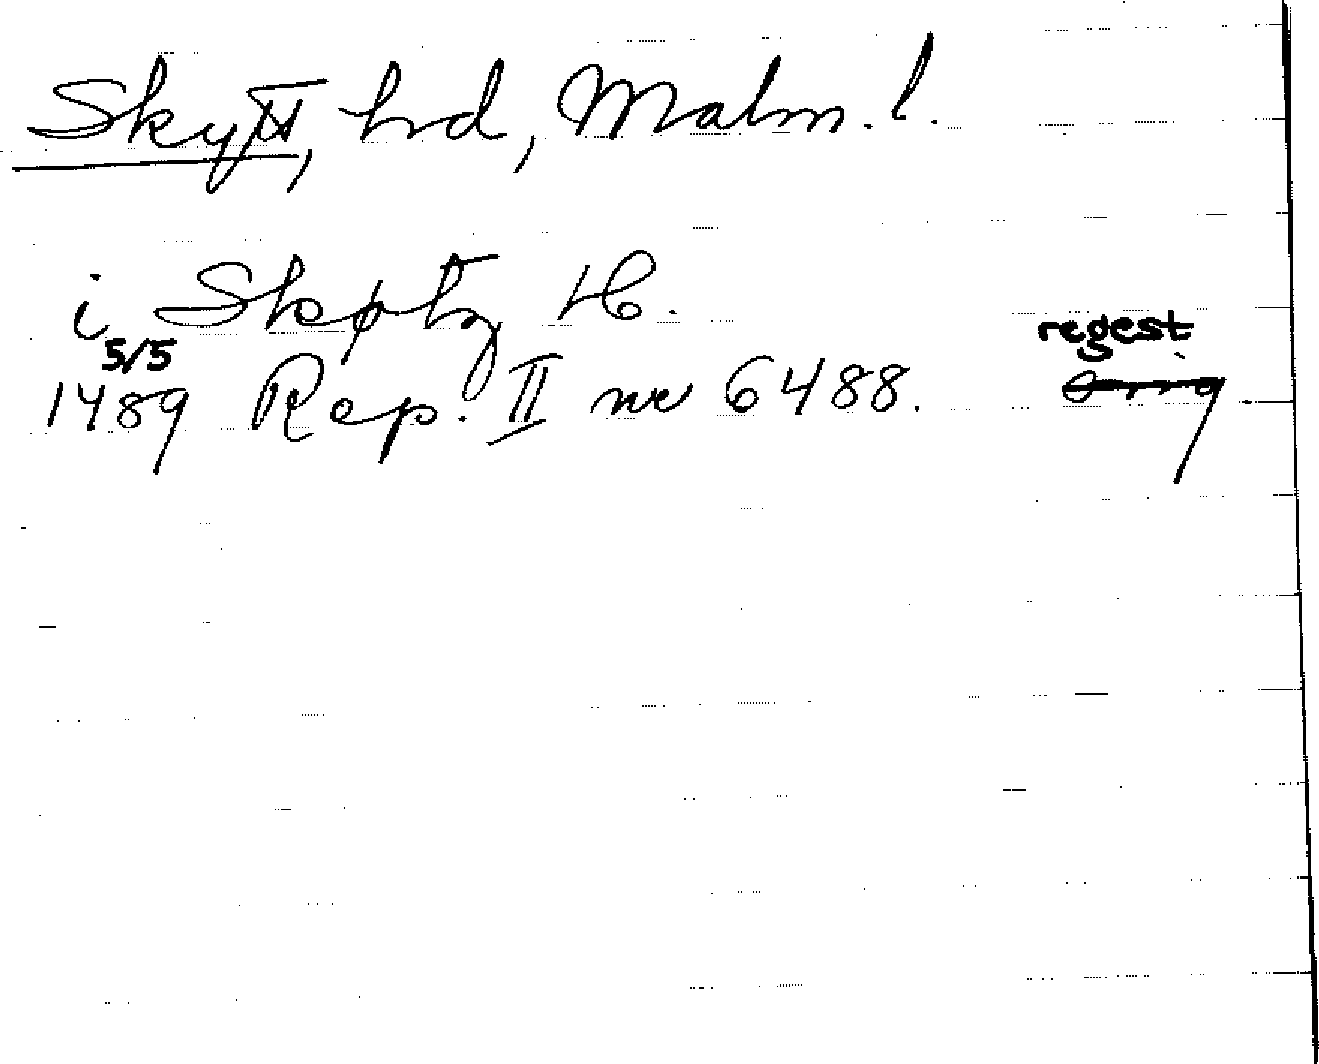 Skytt, hd, Malm. l.
i Skøtz H.
5/5 regest
1489 Rep. II nr 6488. orig.